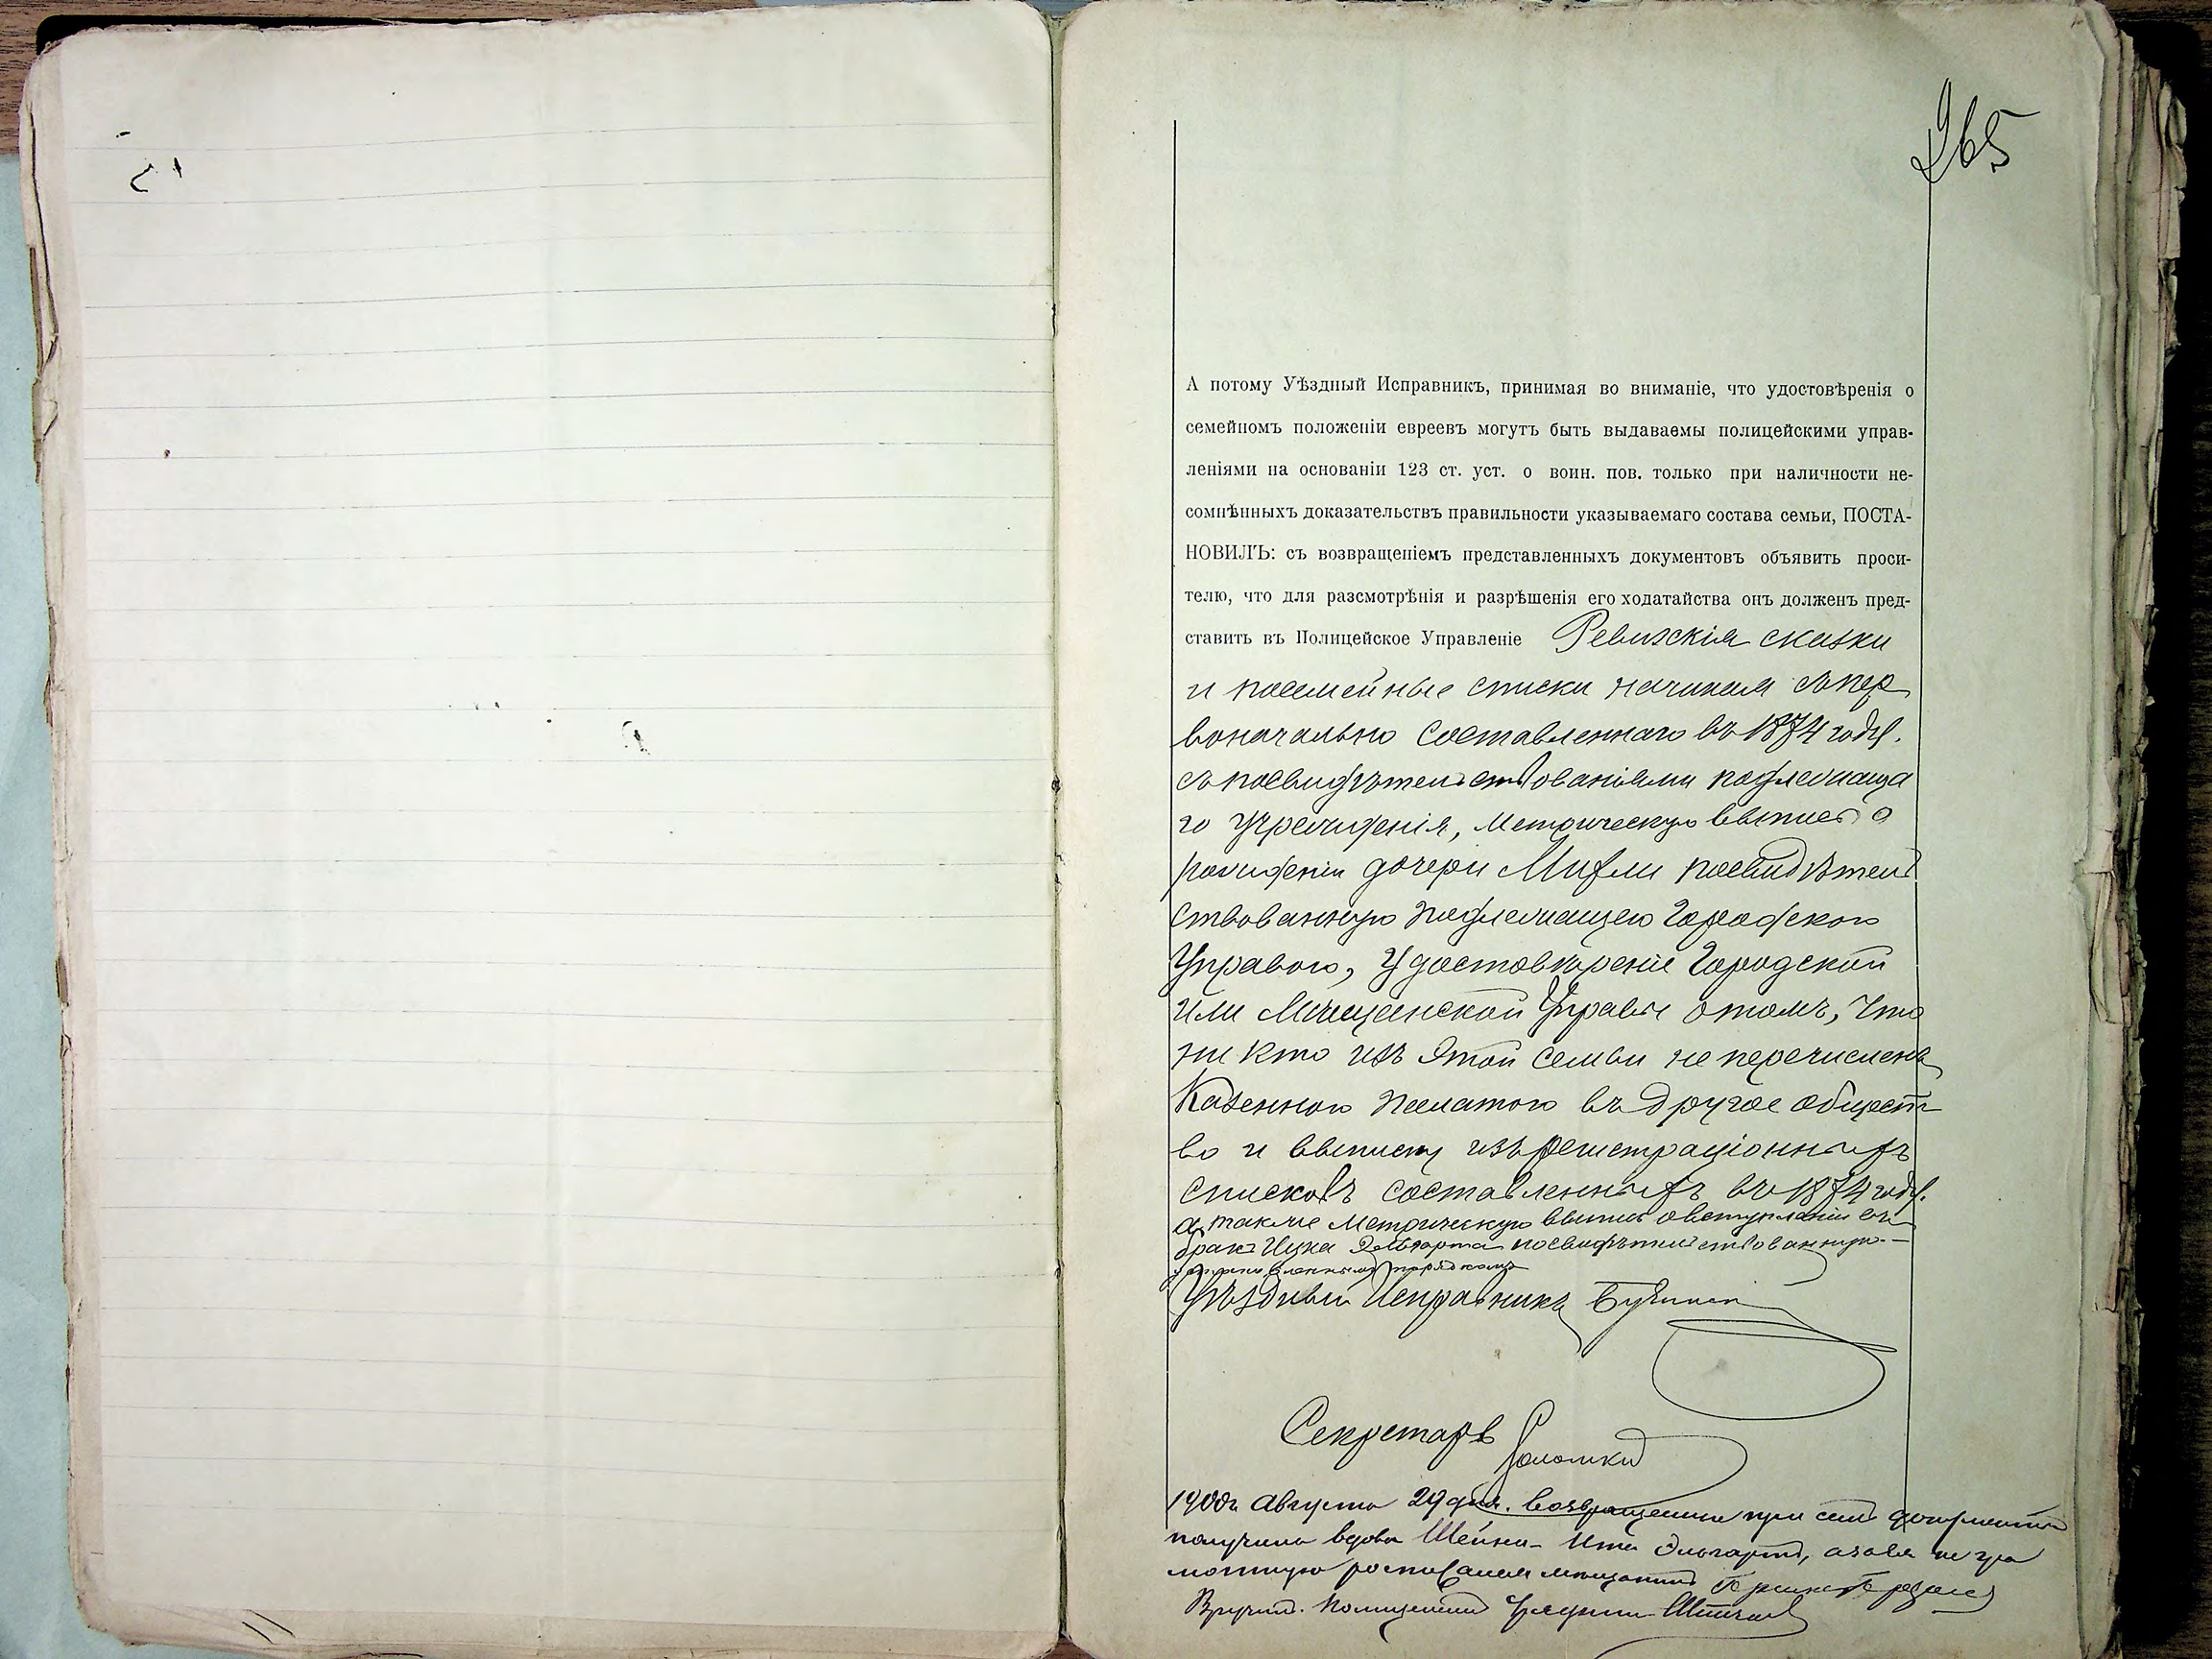 265
А потому Уѣздный Исправникъ, принимая во вниманіе, что удостовѣренія о
семейномъ положеніи евреевъ могутъ быть выдаваемы полицейскими управ-
леніями на основаніи 123 ст. уст. о воин. пов. только при наличности не-
сомнѣнныхъ доказательствъ правильности указываемаго состава семьи, ПОСТА-
НОВИЛЪ: съ возвращеніемъ представленныхъ документовъ объявить проси-
телю, что для разсмотрѣнія и разрѣшенія его ходатайства онъ долженъ пред-
ставить въ Полицейское Управленіе Ревизскія сказки
и посемейные списки начиная съ пер
воначально составленнаго въ 1874 году.
съ посвидѣтельствованіями подлежаща
го учрежденія, метрическую выпись о
рожденіи дочери посвидѣтель
ствованную подлежащею Городскою
Управою, Удостовѣреніе Городской
или Мѣщанской Управы о томъ, что
ни кто изъ этой семьи не перечисленъ
Казенною Палатою въ другое общест
во и выписку изъ регистраціонныхъ
списковъ составленныхъ въ 1874 году.
а также метрическую выпись о вступленіи въ
бракъ Ицка посвидѣтельствованную
установленнымъ порядкомъ
Уѣздный Исправникъ
Секретарь
1900г. Августа 29 дня. возвращенные при семъ документы
получила вдова Шейна-Ита Эльгартъ, а за нея негра
мотную росписался мѣщанинъ
Вручилъ. Полицейскій Урядникъ